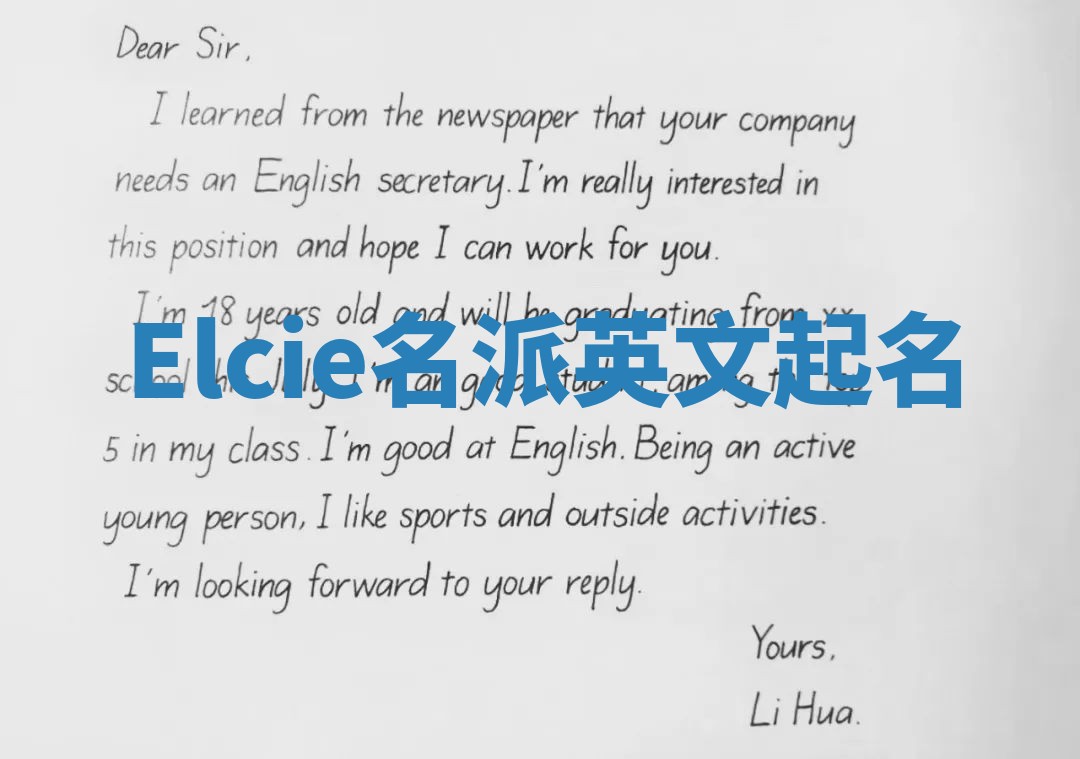 Dear Sir,
I learned from the newspaper that your company
needs an English secretary. I'm really interested in
this position and hope I can work for you.
I'm 18 years old and will be graduating from xx
Elcie名派英文起名
school this July. I'm an good student, among the top
5 in my class. I'm good at English. Being an active
young person, I like sports and outside activities.
I'm looking forward to your reply.
Yours,
Li Hua.